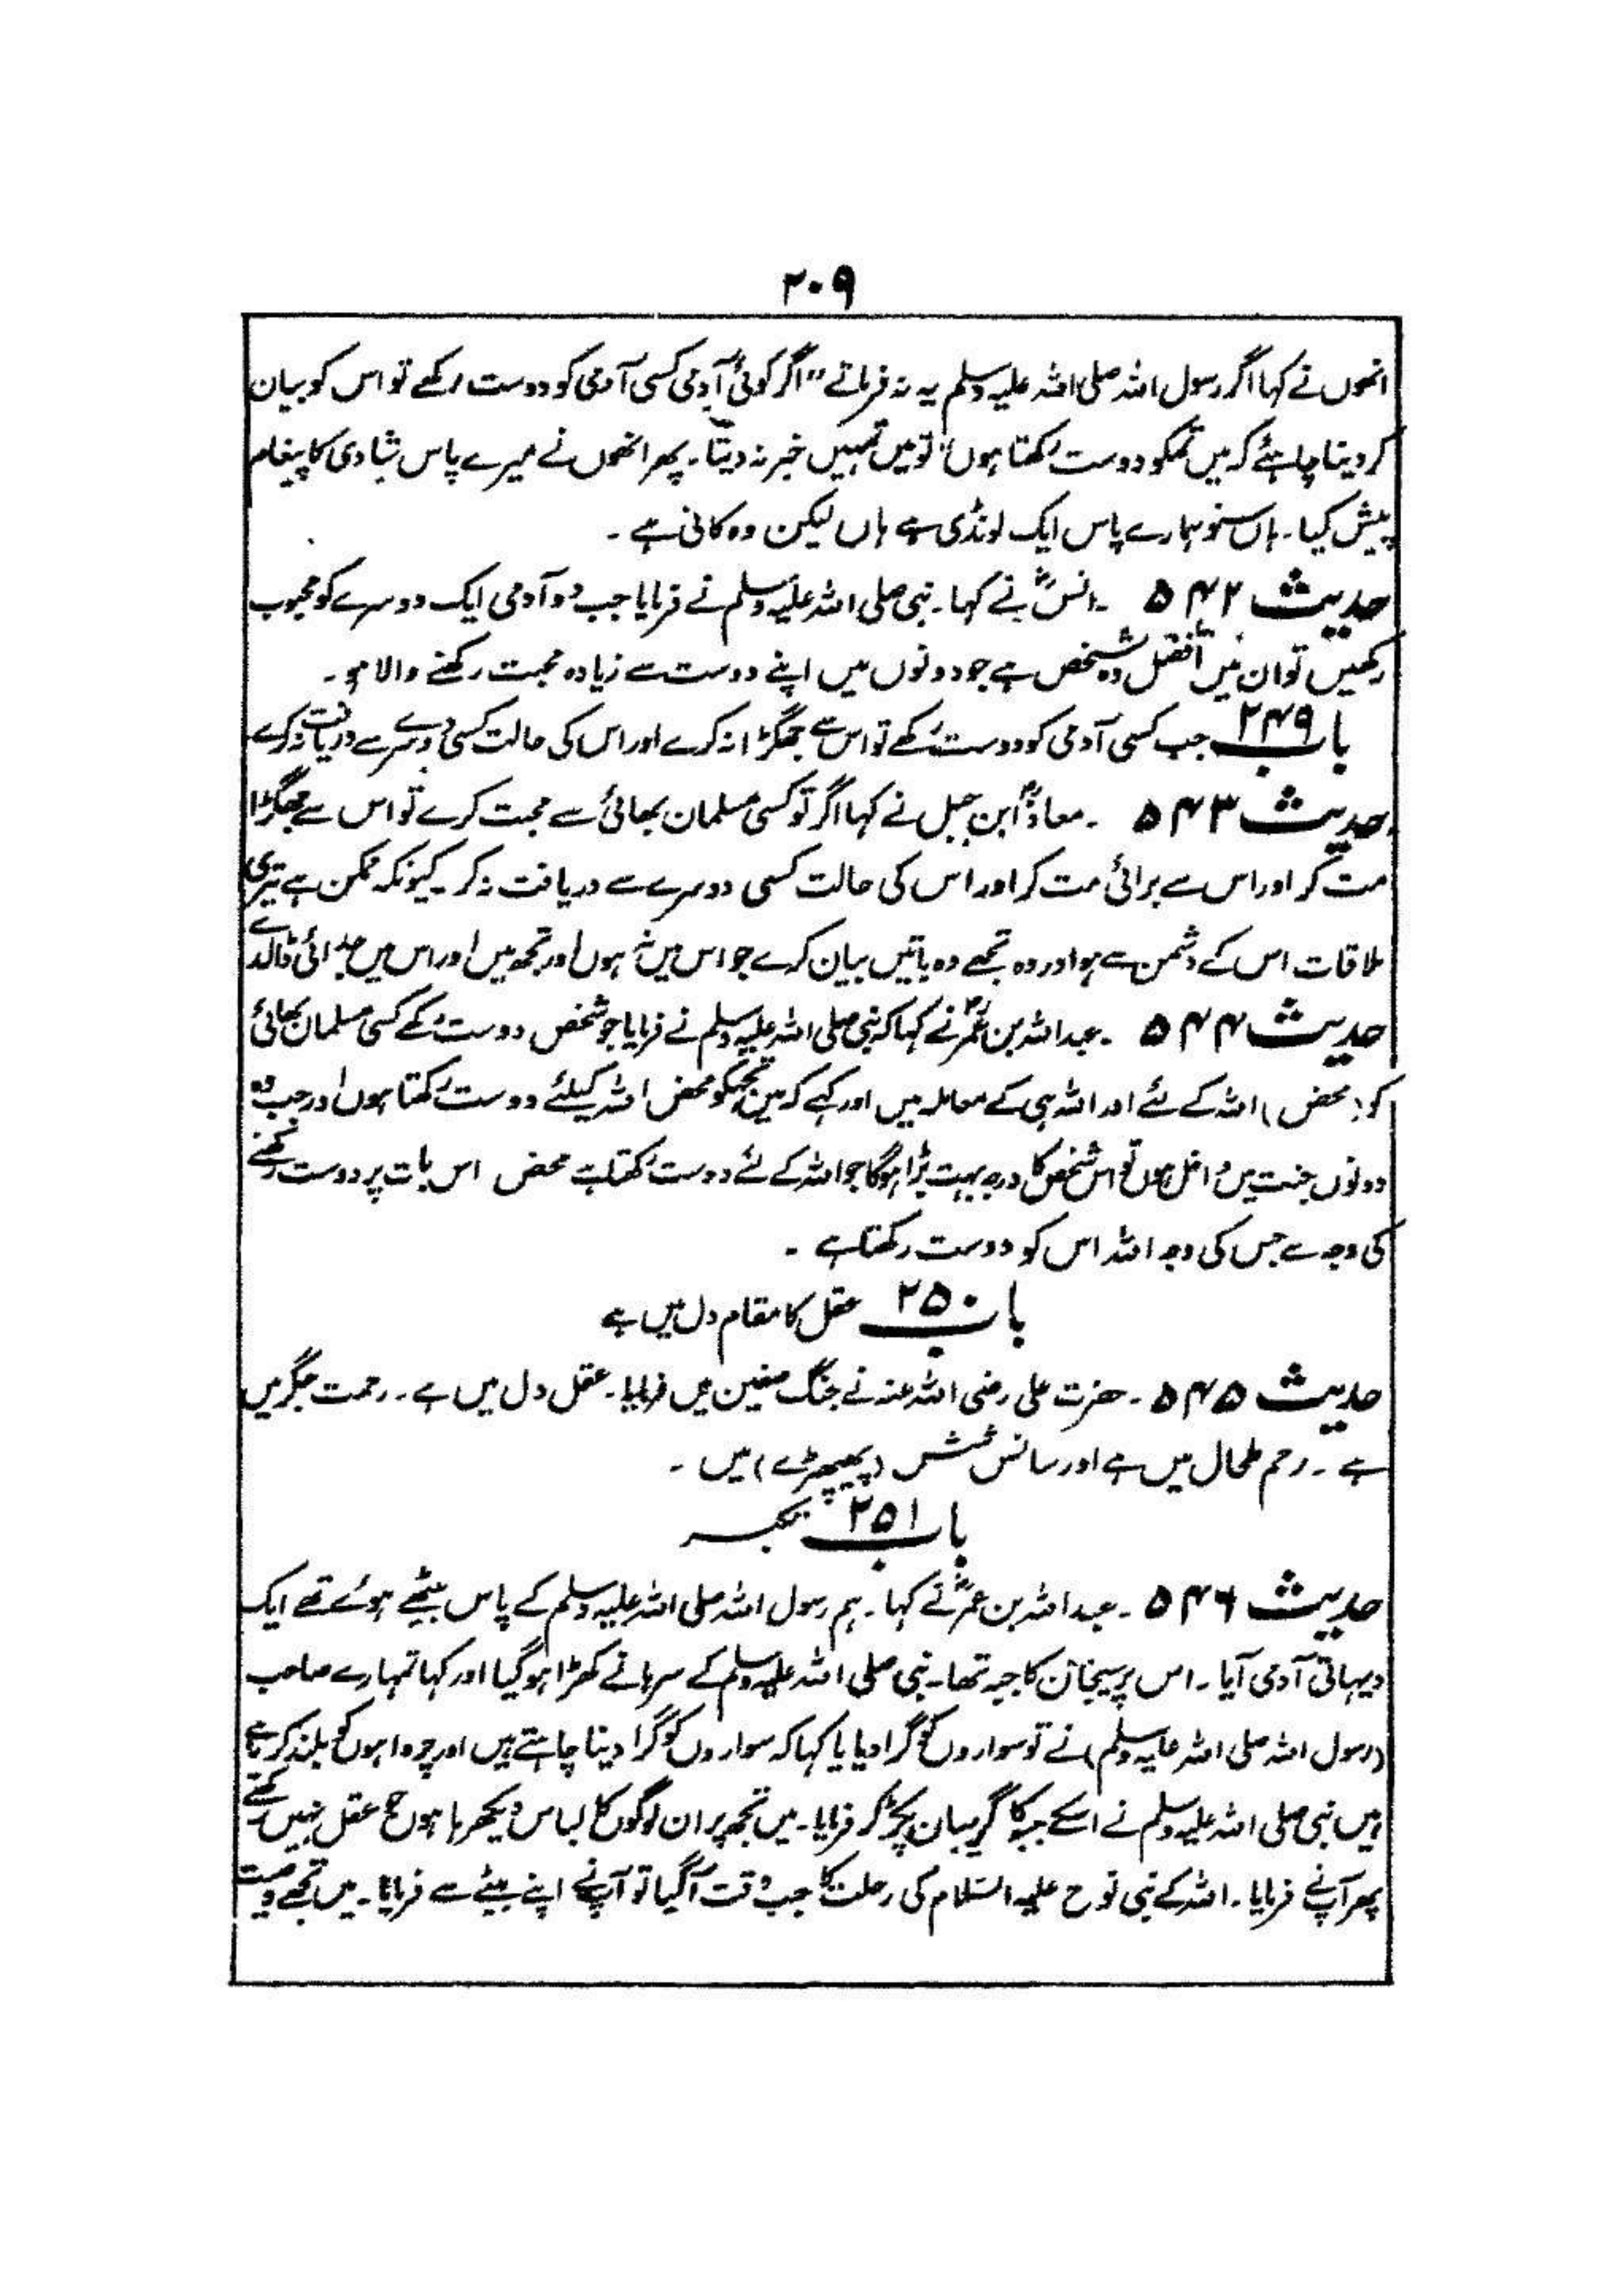 ۲۰۹
انھوں نے کہا اگر رسول اللہ صلی اللہ علیہ وسلم یہ نہ فرماتے "اگر کوئی آدمی کسی آدمی کو دوست رکھے تو اس کو بیان
کر دینا چاہئے کہ میں تمکو دوست رکھتا ہوں" تو میں تمہیں خبر نہ دیتا۔ پھر انھوں نے میرے پاس شادی کا پیغام
پیش کیا۔ ہاں سنو ہمارے پاس ایک لونڈی ہے ہاں لیکن وہ کانی ہے۔
حدیث ۵۴۲ ۔ انسؓ نے کہا۔ نبی صلی اللہ علیہ وسلم نے فرمایا جب دو آدمی ایک دوسرے کو محبوب
رکھیں تو ان میں افضل وہ شخص ہے جو دونوں میں اپنے دوست سے زیادہ محبت رکھنے والا ہو۔
باب ۲۴۹ جب کسی آدمی کو دوست رکھے تو اس سے جھگڑا نہ کرے اور اس کی حالت کسی دوسرے سے دریافت نہ کرے
حدیث ۵۴۳ ۔ معاذؓ ابن جبل نے کہا اگر تو کسی مسلمان بھائی سے محبت کرے تو اس سے جھگڑا
مت کر اور اس سے برائی مت کر اور اس کی حالت کسی دوسرے سے دریافت نہ کر۔ کیونکہ ممکن ہے تیری
ملاقات اس کے دشمن سے ہو اور وہ تجھے وہ باتیں بیان کرے جو اس میں نہ ہوں اور تجھ میں اور اس میں جدائی ڈالدے
حدیث ۵۴۴ ۔ عبداللہ بن عمرؓ نے کہا کہ نبی صلی اللہ علیہ وسلم نے فرمایا جو شخص دوست رکھے کسی مسلمان بھائی
کو (محض) اللہ کے لئے اور اللہ ہی کے معاملہ میں اور کہے کہ میں تجھکو محض اللہ کیلئے دوست رکھتا ہوں اور جب وہ
دونوں جنت میں داخل ہوں تو اس شخص کا درجہ بہت بڑا ہوگا جو اللہ کے لئے دوست رکھتا ہے محض اس بات پر دوست رکھنے
کی وجہ سے جس کی وجہ اللہ اس کو دوست رکھتا ہے۔
باب ۲۵۰ عقل کا مقام دل میں ہے
حدیث ۵۴۵ ۔ حضرت علی رضی اللہ عنہ نے جنگ صفین میں فرمایا۔ عقل دل میں ہے۔ رحمت جگر میں
ہے۔ رحم طحال میں ہے اور سانس شش (پھیپھڑے) میں۔
باب ۲۵۱ تکبر
حدیث ۵۴۶ ۔ عبداللہ بن عمرؓ نے کہا۔ ہم رسول اللہ صلی اللہ علیہ وسلم کے پاس بیٹھے ہوئے تھے ایک
دیہاتی آدمی آیا۔ اس پر سیجان کا جبہ تھا۔ نبی صلی اللہ علیہ وسلم کے سرہانے کھڑا ہوگیا اور کہا تمہارے صاحب
(رسول اللہ صلی اللہ علیہ وسلم) نے تو سواروں کو گرا دیا یا کہا کہ سواروں کو گرا دینا چاہتے ہیں اور چرواہوں کو بلند کر رہے
ہیں نبی صلی اللہ علیہ وسلم نے اسکے جبہ کا گریبان پکڑ کر فرمایا۔ میں تجھ پر ان لوگوں کا لباس دیکھ رہا ہوں جو عقل نہیں رکھتے
پھر آپنے فرمایا۔ اللہ کے نبی نوح علیہ السلام کی رحلت کا جب وقت آگیا تو آپنے اپنے بیٹے سے فرمایا۔ میں تجھے وصیت